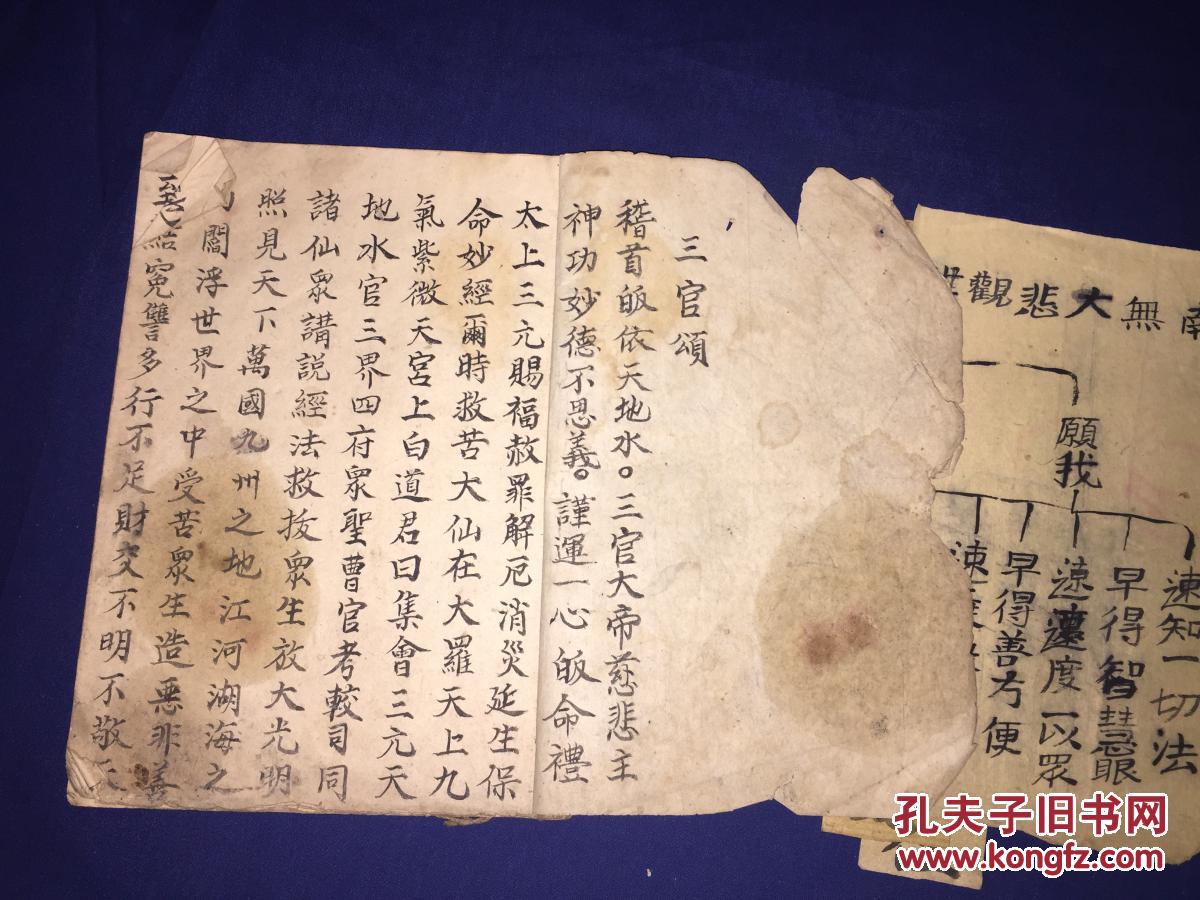 無大悲觀
願我
速知一切法
早得智慧眼
速度一以眾
早得善方便
速
三官頌
稽首皈依天地水。三官大帝慈悲主
神功妙德不思義。謹運一心皈命禮
太上三元賜福赦罪解厄消災延生保
命妙經爾時救苦大仙在大羅天上九
氣紫微天宮上白道君曰集會三元天
地水官三界四府眾聖曹官考較司同
諸仙眾講說經法救拔眾生放大光明
照見天下萬國九州之地江河湖海之
閻浮世界之中受苦眾生造惡非善
結寃讐多行不足財交不明不敬天
孔夫子旧书网
www.kongfz.com